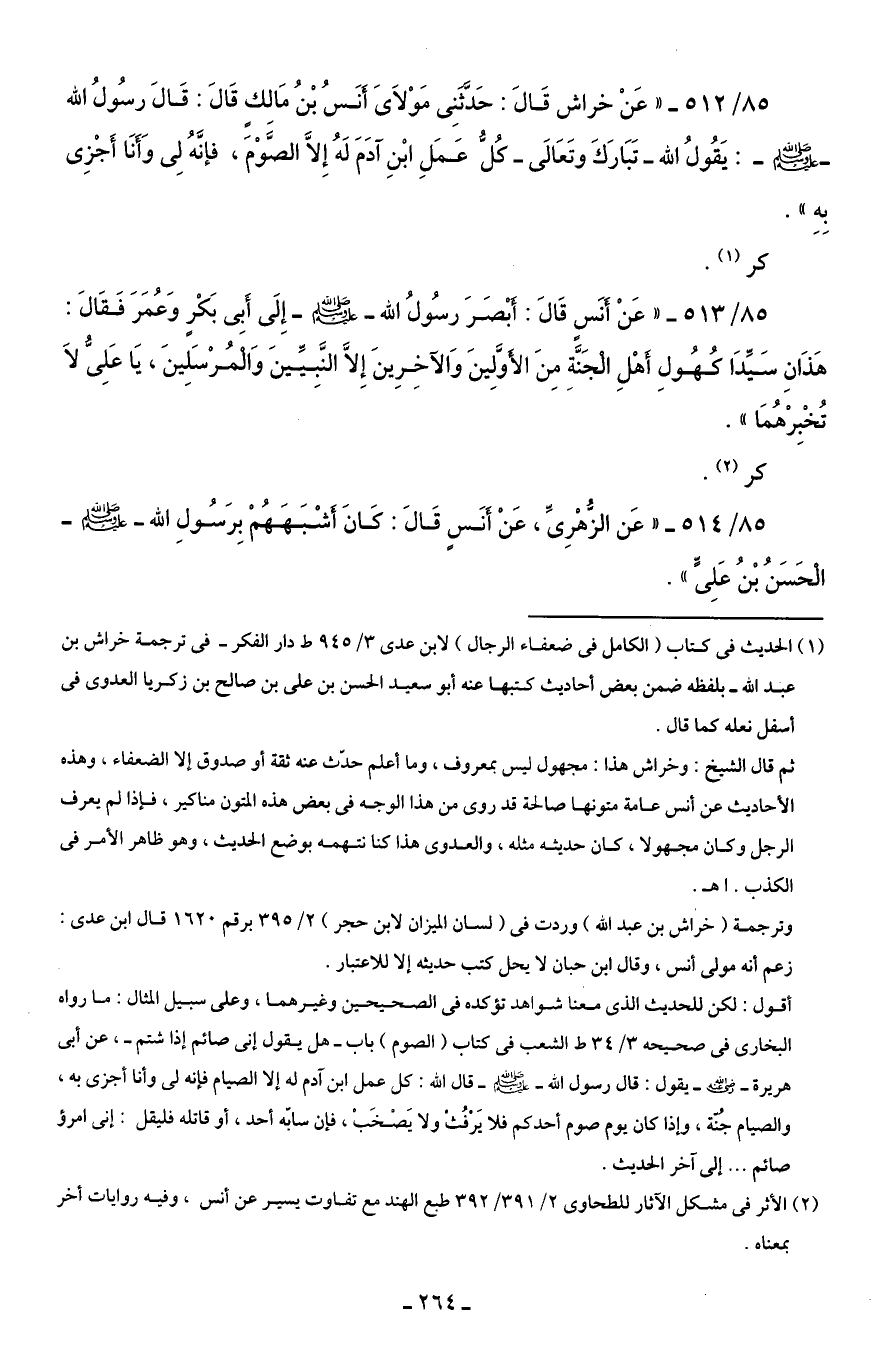 ٨٥/ ٥١٢ ـ « عَنْ خراش قَالَ : حَدَّثَنِى مَوْلَاىَ أَنَسُ بْنُ مَالِكٍ قَالَ : قَالَ رسولُ الله
ـ ﷺ ـ : يَقُولُ الله ـ تَبَارَكَ وتَعَالَى ـ كُلُّ عَمَلِ ابْنِ آدَمَ لَهُ إِلاَّ الصَّوْمَ ، فَإِنَّهُ لِى وأَنَا أَجْزِى
بِهِ » .
كر (١) .
٨٥/ ٥١٣ ـ « عَنْ أَنَسٍ قَالَ : أَبْصَرَ رسولُ الله ـ ﷺ ـ إِلَى أَبِى بَكْرٍ وَعُمَرَ فَقَالَ :
هَذَانِ سَيِّدَا كُهُولِ أَهْلِ الْجَنَّةِ مِنَ الأَوَّلِينَ وَالآخِرِينَ إِلاَّ النَّبِيِّينَ وَالْمُرْسَلِينَ ، يَا عَلِىُّ لاَ
تُخْبِرْهُمَا » .
كر (٢) .
٨٥/ ٥١٤ ـ « عَنِ الزُّهْرِىِّ ، عَنْ أَنَسٍ قَالَ : كَانَ أَشْبَهَهُمْ بِرَسُولِ الله ـ ﷺ ـ
الْحَسَنُ بْنُ عَلِىٍّ » .
(١) الحديث فى كتاب ( الكامل فى ضعفاء الرجال ) لابن عدى ٣/ ٩٤٥ ط دار الفكر ـ فى ترجمة خراش بن
عبد الله ـ بلفظه ضمن بعض أحاديث كتبها عنه أبو سعيد الحسن بن على بن صالح بن زكريا العدوى فى
أسفل نعله كما قال .
ثم قال الشيخ : وخراش هذا : مجهول ليس بمعروف ، وما أعلم حدّث عنه ثقة أو صدوق إلا الضعفاء ، وهذه
الأحاديث عن أنس عامة متونها صالحة قد روى من هذا الوجه فى بعض هذه المتون مناكير ، فإذا لم يعرف
الرجل وكان مجهولا ، كان حديثه مثله ، والعدوى هذا كنا نتهمه بوضع الحديث ، وهو ظاهر الأمر فى
الكذب . ا هـ .
وترجمة ( خراش بن عبد الله ) وردت فى ( لسان الميزان لابن حجر ) ٢/ ٣٩٥ برقم ١٦٢٠ قال ابن عدى :
زعم أنه مولى أنس ، وقال ابن حبان لا يحل كتب حديثه إلا للاعتبار .
أقول : لكن للحديث الذى معنا شواهد تؤكده فى الصحيحين وغيرهما ، وعلى سبيل المثال : ما رواه
البخارى فى صحيحه ٣/ ٣٤ ط الشعب فى كتاب ( الصوم ) باب ـ هل يقول إنى صائم إذا شتم ـ ، عن أبى
هريرة ـ رضي الله عنه ـ يقول : قال رسول الله ـ ﷺ ـ قال الله : كل عمل ابن آدم له إلا الصيام فإنه لى وأنا أجزى به ،
والصيام جُنّة ، وإذا كان يوم صوم أحدكم فلا يَرْفُثْ ولا يَصْخَبْ ، فإن سابّه أحد ، أو قاتله فليقل : إنى امرؤ
صائم ... إلى آخر الحديث .
(٢) الأثر فى مشكل الآثار للطحاوى ٢/ ٣٩١/ ٣٩٢ طبع الهند مع تفاوت يسير عن أنس ، وفيه روايات أخر
بمعناه .
ـ ٢٦٤ ـ